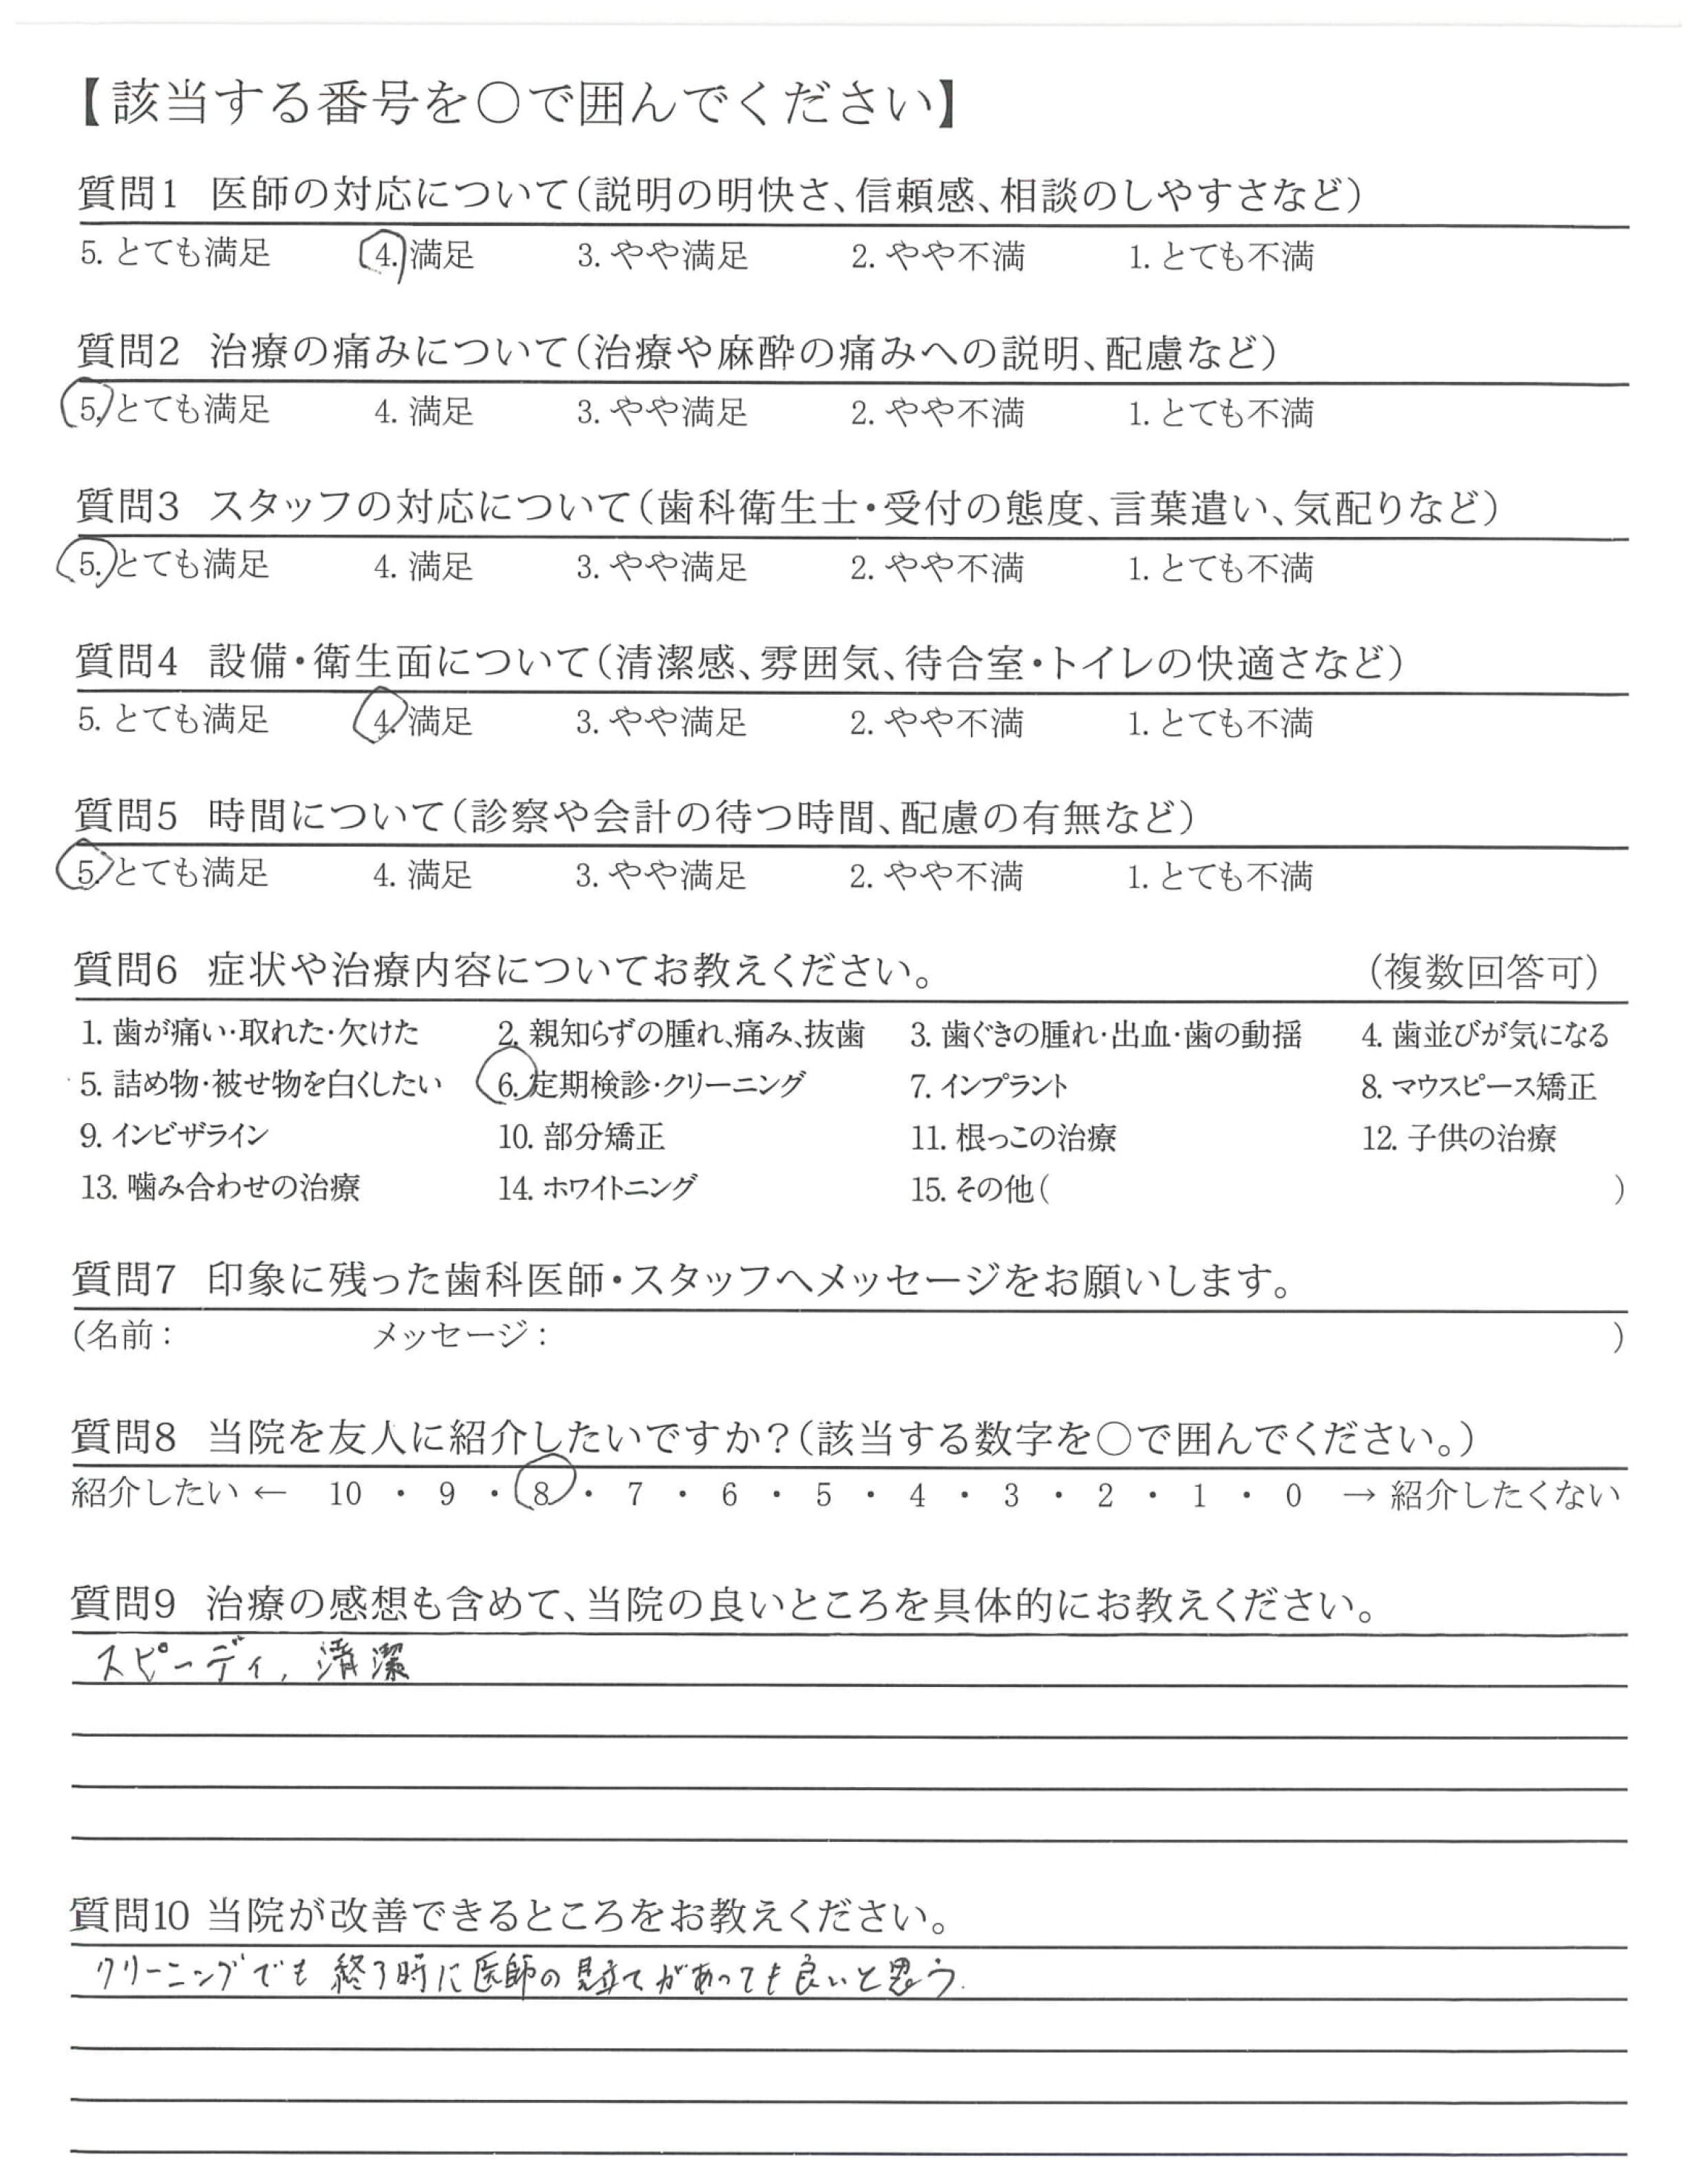 【該当する番号を○で囲んでください】
質問1 医師の対応について(説明の明快さ、信頼感、相談のしやすさなど)
5. とても満足 4. 満足 3. やや満足 2. やや不満 1. とても不満
質問2 治療の痛みについて(治療や麻酔の痛みへの説明、配慮など)
5. とても満足 4. 満足 3. やや満足 2. やや不満 1. とても不満
質問3 スタッフの対応について(歯科衛生士・受付の態度、言葉遣い、気配りなど)
5. とても満足 4. 満足 3. やや満足 2. やや不満 1. とても不満
質問4 設備・衛生面について(清潔感、雰囲気、待合室・トイレの快適さなど)
5. とても満足 4. 満足 3. やや満足 2. やや不満 1. とても不満
質問5 時間について(診察や会計の待つ時間、配慮の有無など)
5. とても満足 4. 満足 3. やや満足 2. やや不満 1. とても不満
質問6 症状や治療内容についてお教えください。 (複数回答可)
1. 歯が痛い・取れた・欠けた 2. 親知らずの腫れ、痛み、抜歯 3. 歯ぐきの腫れ・出血・歯の動揺 4. 歯並びが気になる
5. 詰め物・被せ物を白くしたい 6. 定期検診・クリーニング 7. インプラント 8. マウスピース矯正
9. インビザライン 10. 部分矯正 11. 根っこの治療 12. 子供の治療
13. 噛み合わせの治療 14. ホワイトニング 15. その他( )
質問7 印象に残った歯科医師・スタッフへメッセージをお願いします。
(名前: メッセージ: )
質問8 当院を友人に紹介したいですか?(該当する数字を○で囲んでください。)
紹介したい ← 10 ・ 9 ・ 8 ・ 7 ・ 6 ・ 5 ・ 4 ・ 3 ・ 2 ・ 1 ・ 0 → 紹介したくない
質問9 治療の感想も含めて、当院の良いところを具体的にお教えください。
スピーディ, 清潔
質問10 当院が改善できるところをお教えください。
クリーニングでも 終了時に医師の見立てがあっても良いと思う.